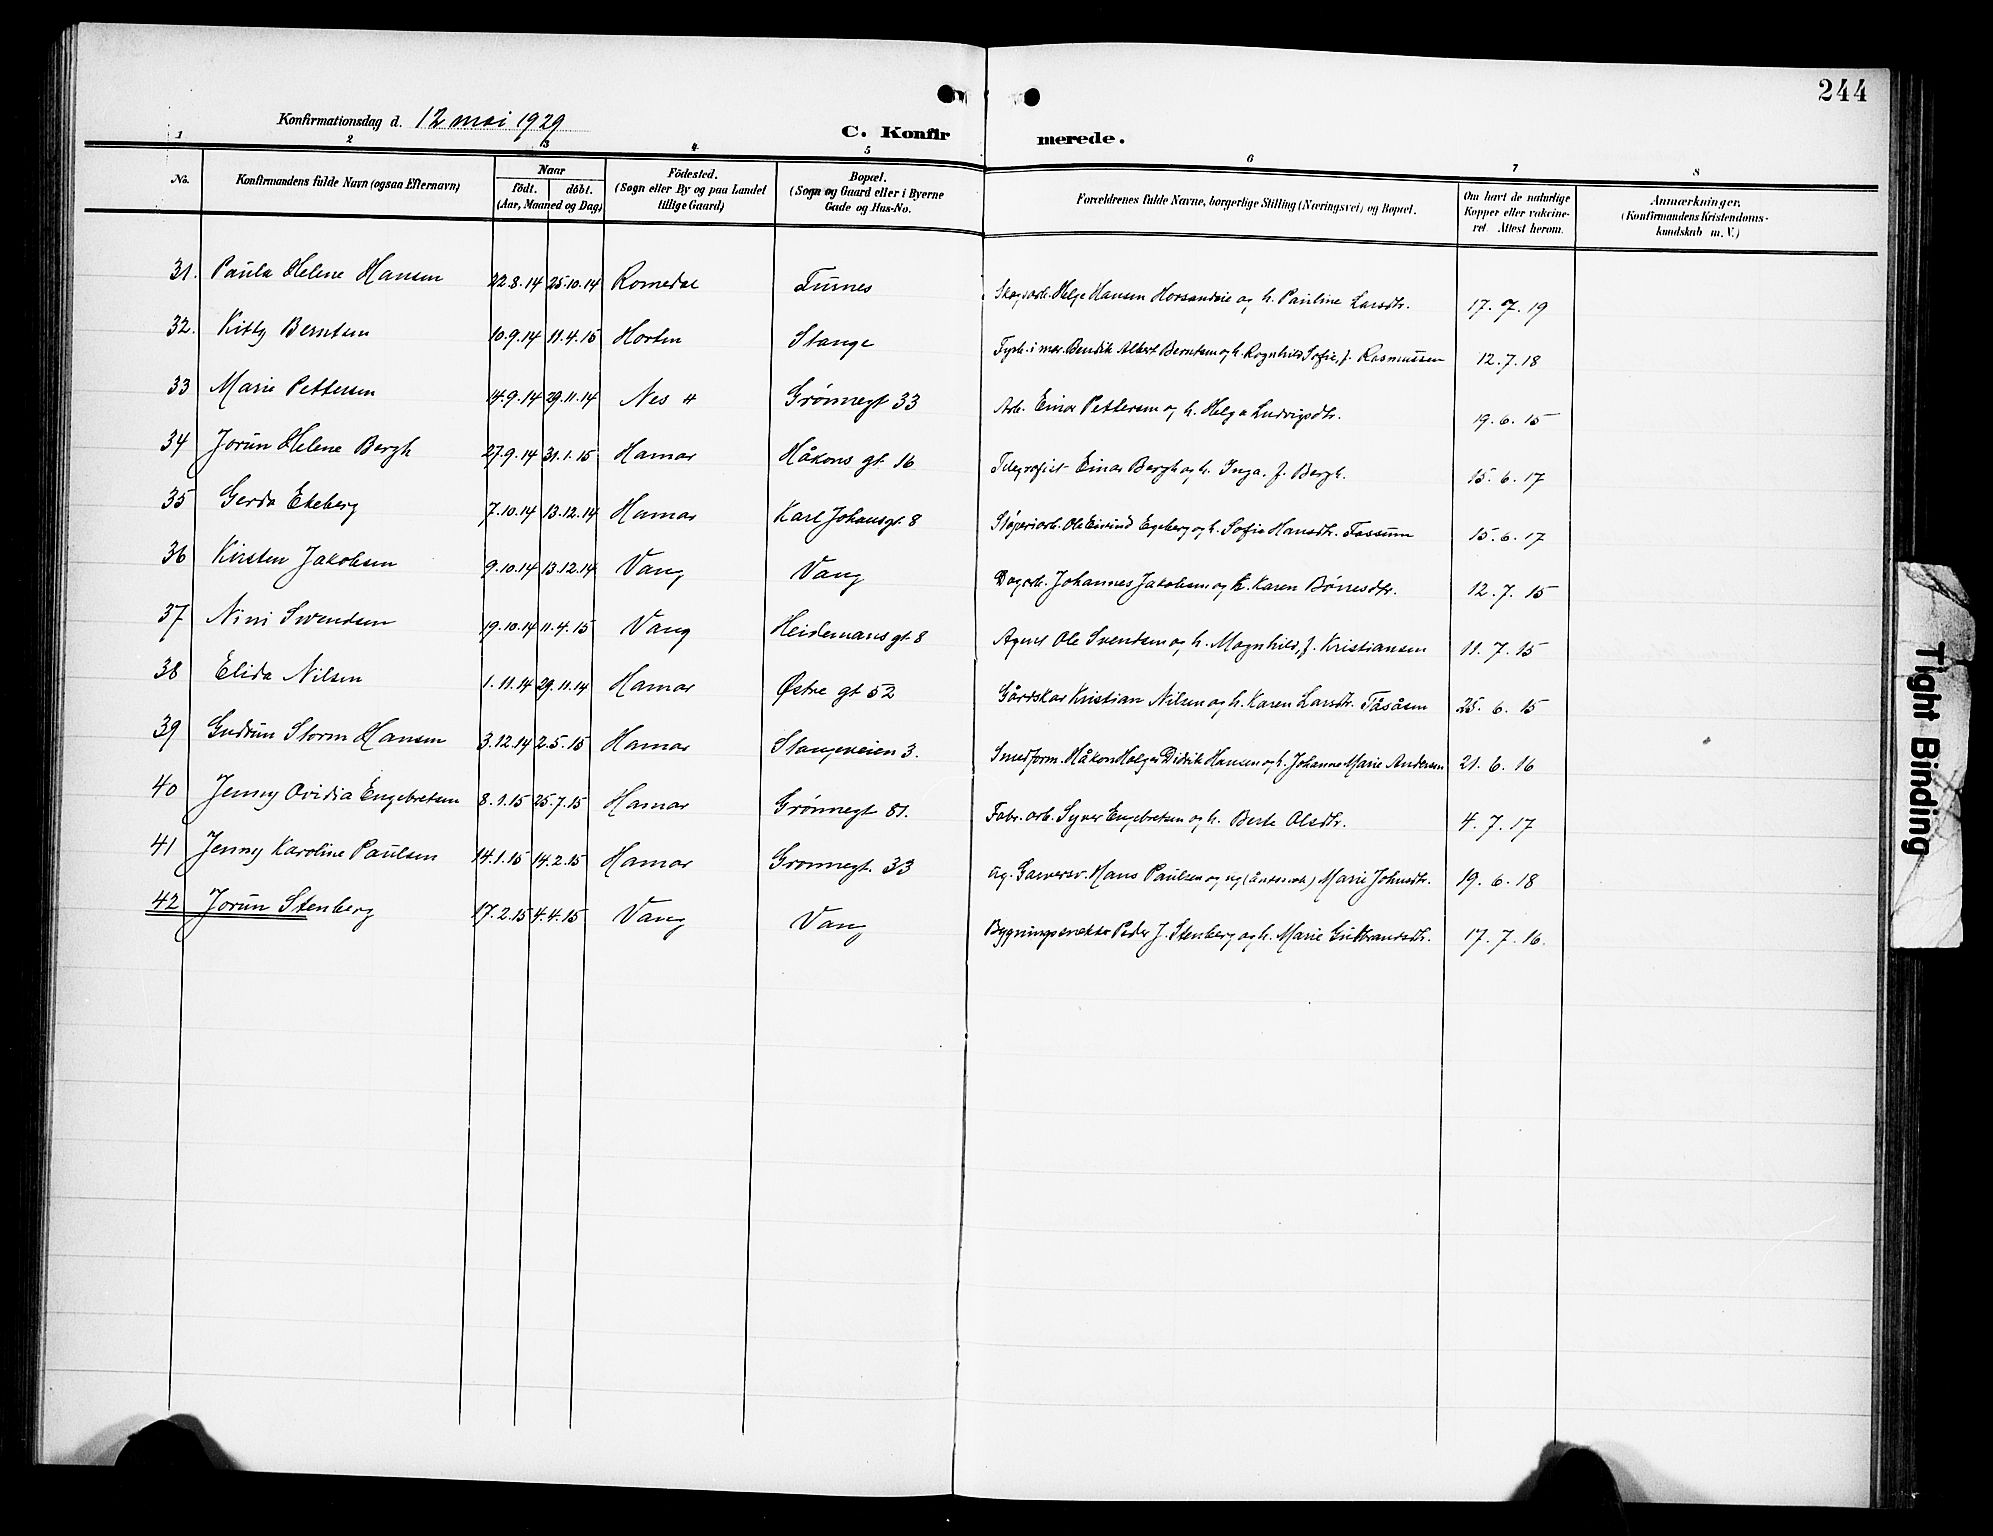 244
Konfirmationsdag d. 12 mai 1929
C. Konfirmerede.
1 2 3 4 5 6 7 8
No. | Konfirmandens fulde Navn (ogsaa Efternavn) | Naar födt. döbt. (Aar, Maaned og Dag) | Födested. (Sogn eller By og paa Landet tillige Gaard) | Bopæl. (Sogn og Gaard eller i Byerne Gade og Hus-No. | Forældrenes fulde Navne, borgerlige Stilling (Næringsvei) og Bopæl. | Om havt de naturlige Kopper eller vakcineret. Attest herom. | Anmærkninger. (Konfirmandens Kristendomskundskab m. V.)
31. Paula Helene Hansen 22.8.14 25.10.14 Romedal Furnes Skogsarb. Helge Hansen Horsandeie og h. Pauline Larsdtr. 17.7.19
32. Kitty Berntsen 10.9.14 11.4.15 Horten Stange Fyrb. i mar. Bendik Albert Berntsen og h. Ragnhild Sofie, f. Rasmussen 12.7.18
33 Marie Pettersen 14.9.14 29.11.14 Nes H Grønnegt 33 Arb. Einar Pettersen og h. Helga Ludvigsdtr. 19.6.15
34 Jorun Helene Bergh 27.9.14 31.1.15 Hamar Håkons gt. 16 Telegrafist Einar Bergh og h. Inga, f. Bergh. 15.6.17
35 Gerda Ekeberg 7.10.14 13.12.14 Hamar Karl Johansgt. 8 Støperiarb. Ole Eivind Egeberg og h. Sofie Hansdtr. Fossum 15.6.17
36 Kirsten Jakobsen 9.10.14 13.12.14 Vang Vang Dagarb. Johannes Jakobsen og h. Karen Børresdtr. 12.7.15
37 Nini Svendsen 19.10.14 11.4.15 Vang Heidemansgt 8 Agent Ole Svendsen og h. Magnhild, f. Kristiansen 11.7.15
38 Elida Nilsen 1.11.14 29.11.14 Hamar Østre gt 52 Gårdskar Kristian Nilsen og h. Karen Larsdtr. Tåsåsen 25.6.15
39 Gudrun Storm Hansen 3.12.14 2.5.15 Hamar Stangeveien 3. Smedform. Håkon Holger Didrik Hansen og h. Johanne Marie Andersen 21.6.16
40 Jenny Ovidia Engebretsen 8.1.15 25.7.15 Hamar Grønnegt 81. Fabr. arb. Syver Engebretsen og h. Berte Olsdtr. 4.7.17
41 Jenny Karoline Paulsen 14.1.15 14.2.15 Hamar Grønnegt. 33 ug. Garversv. Hans Paulsen og ug Marie Johnsdtr. 19.6.18
42 Jorun Stenberg 17.2.15 4.4.15 Vang Vang Bygningssnekker Peder J. Stenberg og h. Marie Gulbrandsdtr. 17.7.16.
Tight Binding